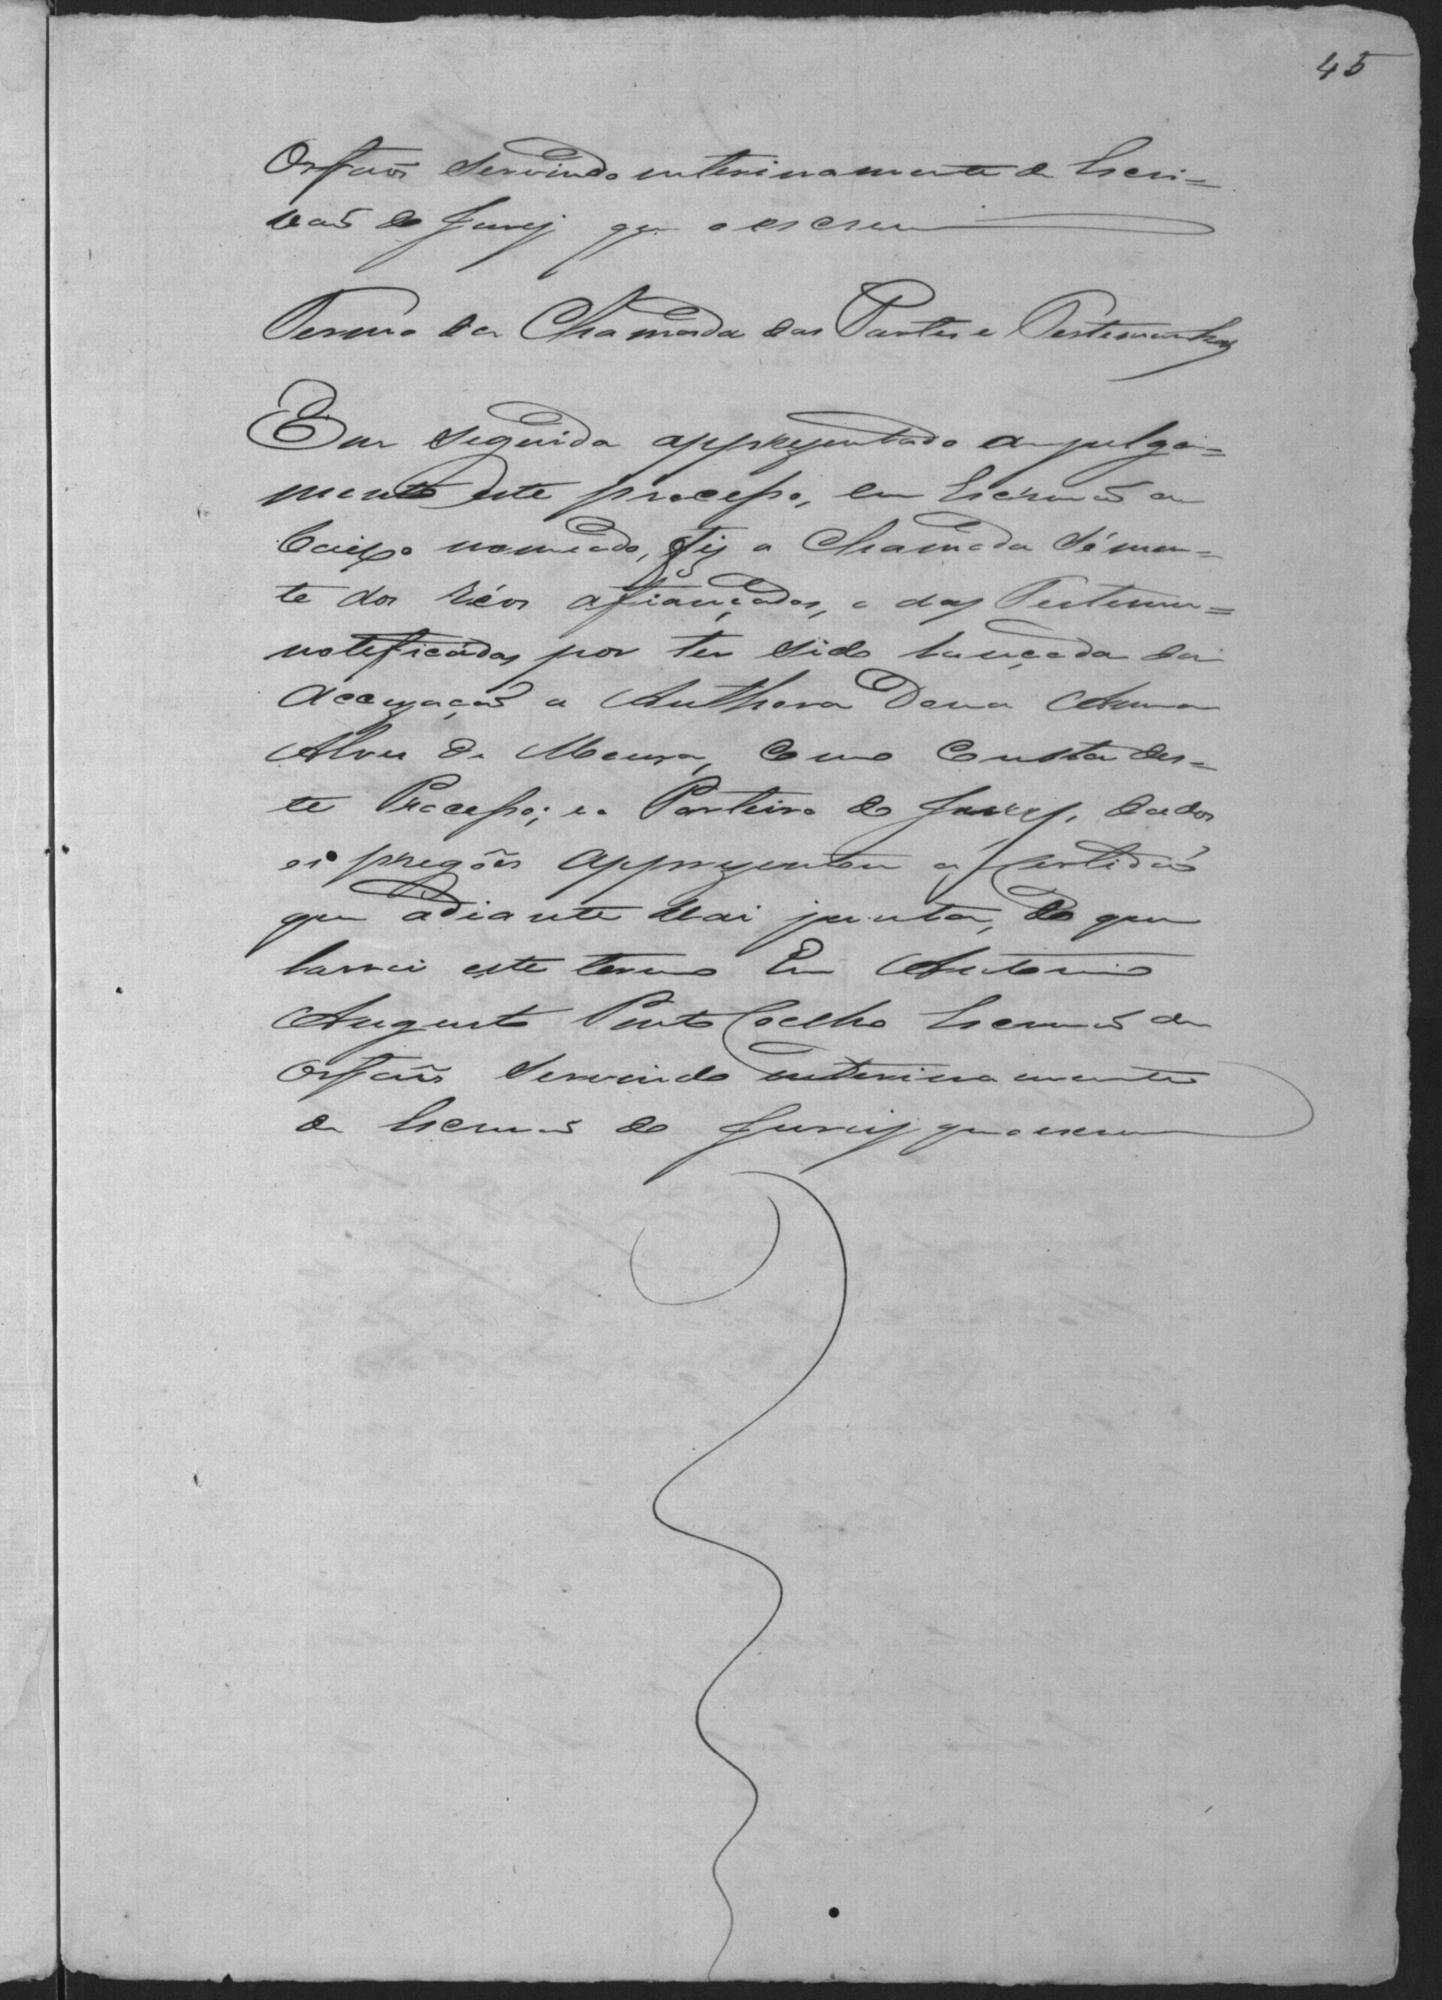 45
Orfaõs servindo interinamente de Escri=
vaõ do Jury que o escrevi
Termo da Chamada das Partes e Testemunhas
Em seguida appresentado a julga=
mento este processo, eu Escrivaõ a
baixo nomeado, fiz a Chamada sómen=
te dos réos afiançados, e das Testemu=
notificadas por ter sido lançada da
accuzaçaõ a Authora Dona Anna
Alves de Moura, como consta des=
te Processo; e o Porteiro do Jury, dados
os pregões appresentou a Certidaõ
que adiante vai junta, do que
lavrei este termo Eu Antonio
Augusto Pinto Coelho Escrivaõ de
Orfaõs servindo interinamente
de Escrivaõ do Jury que o escrevi